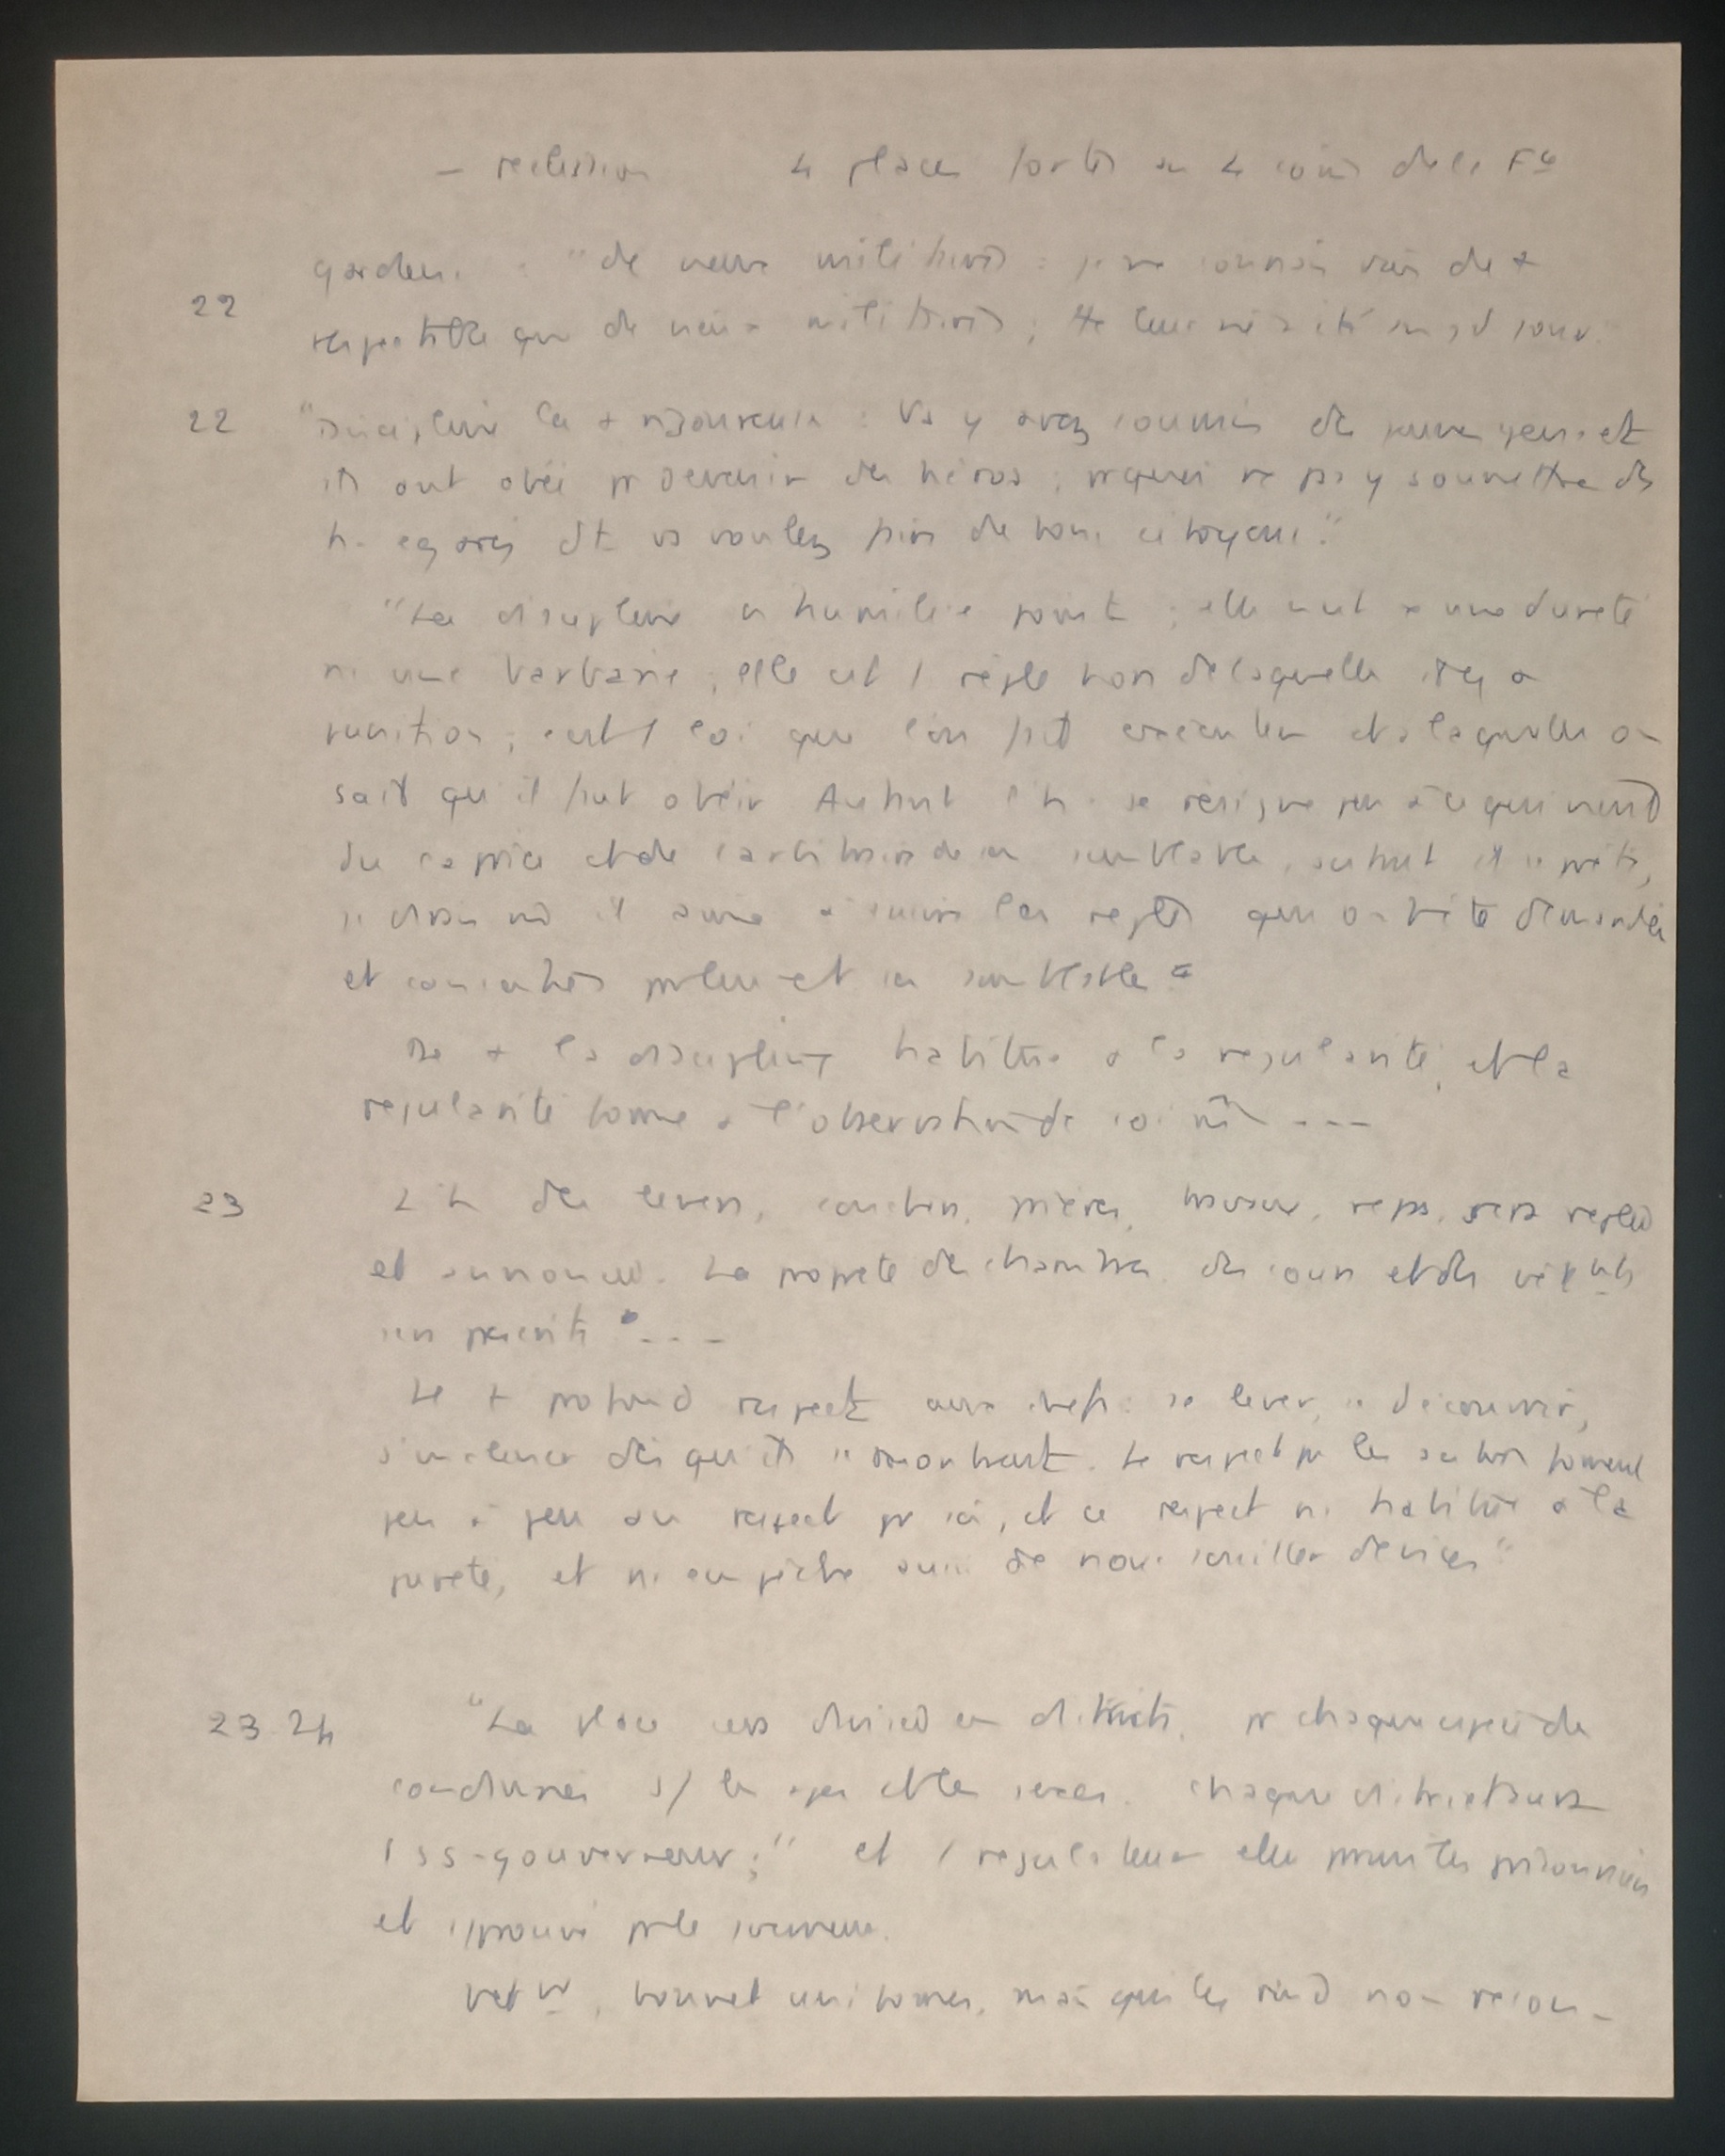 – réclusion 4 places fortes au 4 coins de la Fce
gardiens : "de vieux militaires : je ne connais rien de +
22 respectable que de vieux militaires ;
22 "Discipline la + rigoureuse : Vs y avez soumis de jeunes gens et
ils ont obéi pr devenir des héros ; pquoi ne pas y soumettre des
h. égarés dt vs voulez faire de bons citoyens."
"La discipline n'humilie point ; elle n'est ni une dureté
ni une barbarie ; elle est 1 règle hors de laquelle il y a
punition ; c'est 1 loi que l'on fait exécuter et à laquelle on
sait qu'il faut obéir. Autant l'h. se résigne peu à ce qui vient
du caprice et de l'arbitraire de son semblable, autant il se prête,
il aime à suivre les règles que
et par lui et son semblable"
De + la discipline habitue à la régularité, et la
régularité forme à l'observation de soi mê ---
23 L'h des levers, couchers, prières, travaux, repas, sera réglée
et annoncée. La propreté des chambres, des cours et des vêtmts
sera prescrite" ---
Le + profond respect aux chefs : se lever, se découvrir,
s'incliner dès qu'ils se montrent. Le respect pr les autres forment
peu à peu au respect pr soi, et ce respect ns habitue à la
pureté, et ns empêche aussi de nous souiller de vices"
23-24 "La place sera divisée en districts, pr chaque espèce de
condamnés s/ les âges et les sexes. Chaque district aura
1 ss-gouverneur ;" et 1 régulateur élu parmi les prisonniers
et approuvé par le gouverneur.
Vetmt, bonnet uniformes, mais qui les rend non recon-